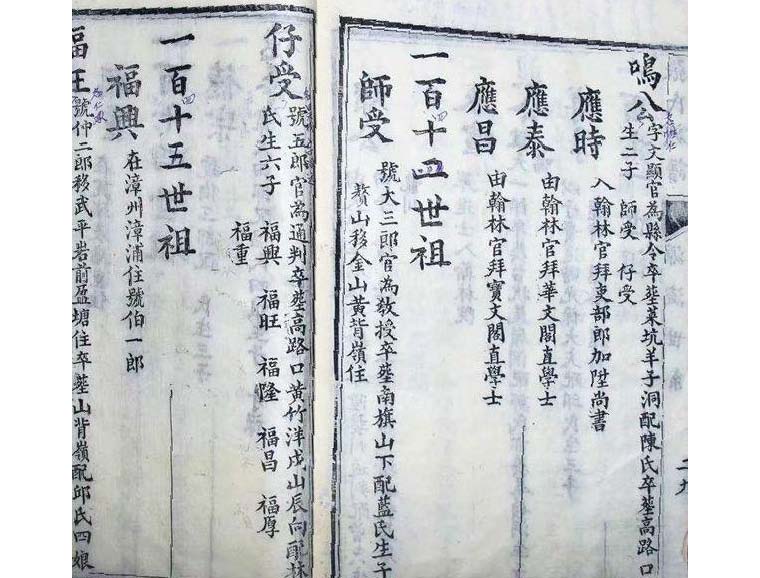 鳴公 字文顯官為縣令卒葬菜坑羊子洞配陳氏卒葬高路口
生二子 師受 仔受
應時 入翰林官拜吏部郎加陞尚書
應泰 由翰林官拜華文閣直學士
應昌 由翰林官拜寶文閣直學士
一百十四世祖
師受 號大三郎官為教授卒葬南旗山下配藍氏生子
贅山移金山黃背嶺住
仔受 號五郎官為通判卒葬高路口黃竹洋戌山辰向配林
氏生六子 福興 福旺 福隆 福昌 福厚
福重
一百十五世祖
福興 在漳州漳浦住號伯一郎
福旺 號仲二郎移武平岩前盈塘住卒葬山背嶺配邱氏四娘